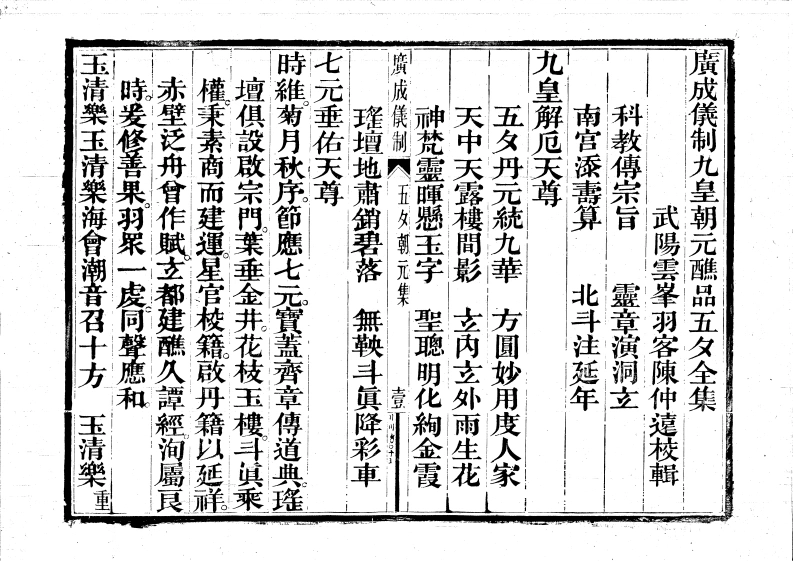 廣成儀制九皇朝元醮品五夕全集
武陽雲峯羽客陳仲遠校輯
科教傳宗旨　靈章演洞玄
南宫添壽算　北斗注延年
九皇解厄天尊
五夕丹元統九華　方圓妙用度人家
天中天露樓間影　玄内玄外雨生花
神梵靈暉懸玉字　聖聰明化絢金霞
廣成儀制　五夕朝元集　壹
瑤壇地肅銷碧落　無鞅斗眞降彩車
七元垂佑天尊
時維菊月秋序。節應七元。寶蓋齊章傳道典。瑤
壇俱設啟宗門。葉垂金井。花枝玉樓。斗眞乘
權。秉素商而建運。星官校籍。啟丹籍以延祥。
赤壁泛舟曾作賦。玄都建醮久譚經。洵屬良
時。爰修善果。羽眾一處。同聲應和。
玉清樂玉清樂海會潮音召十方　玉清樂重